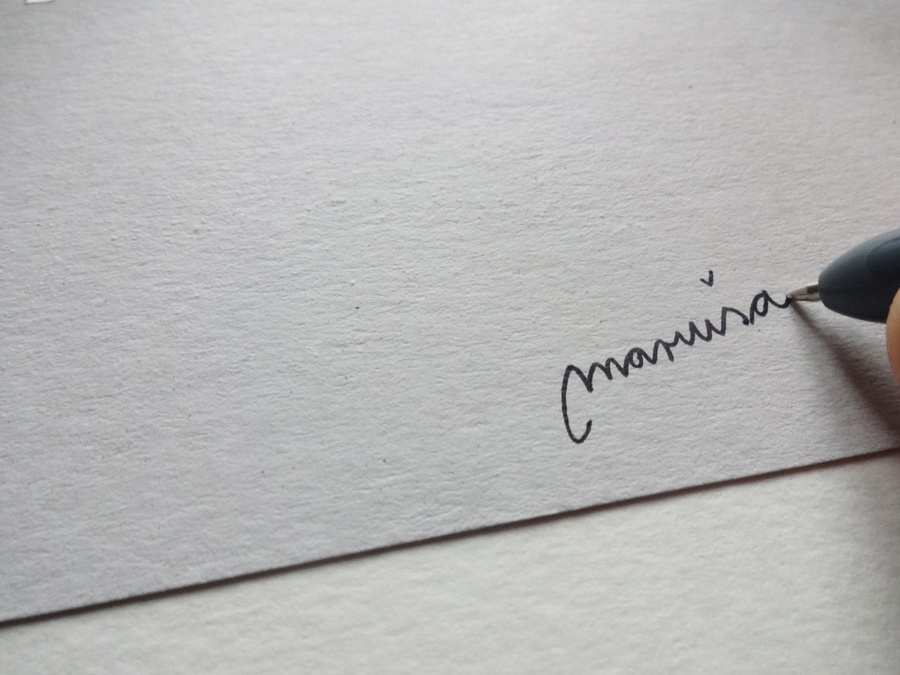 maruša